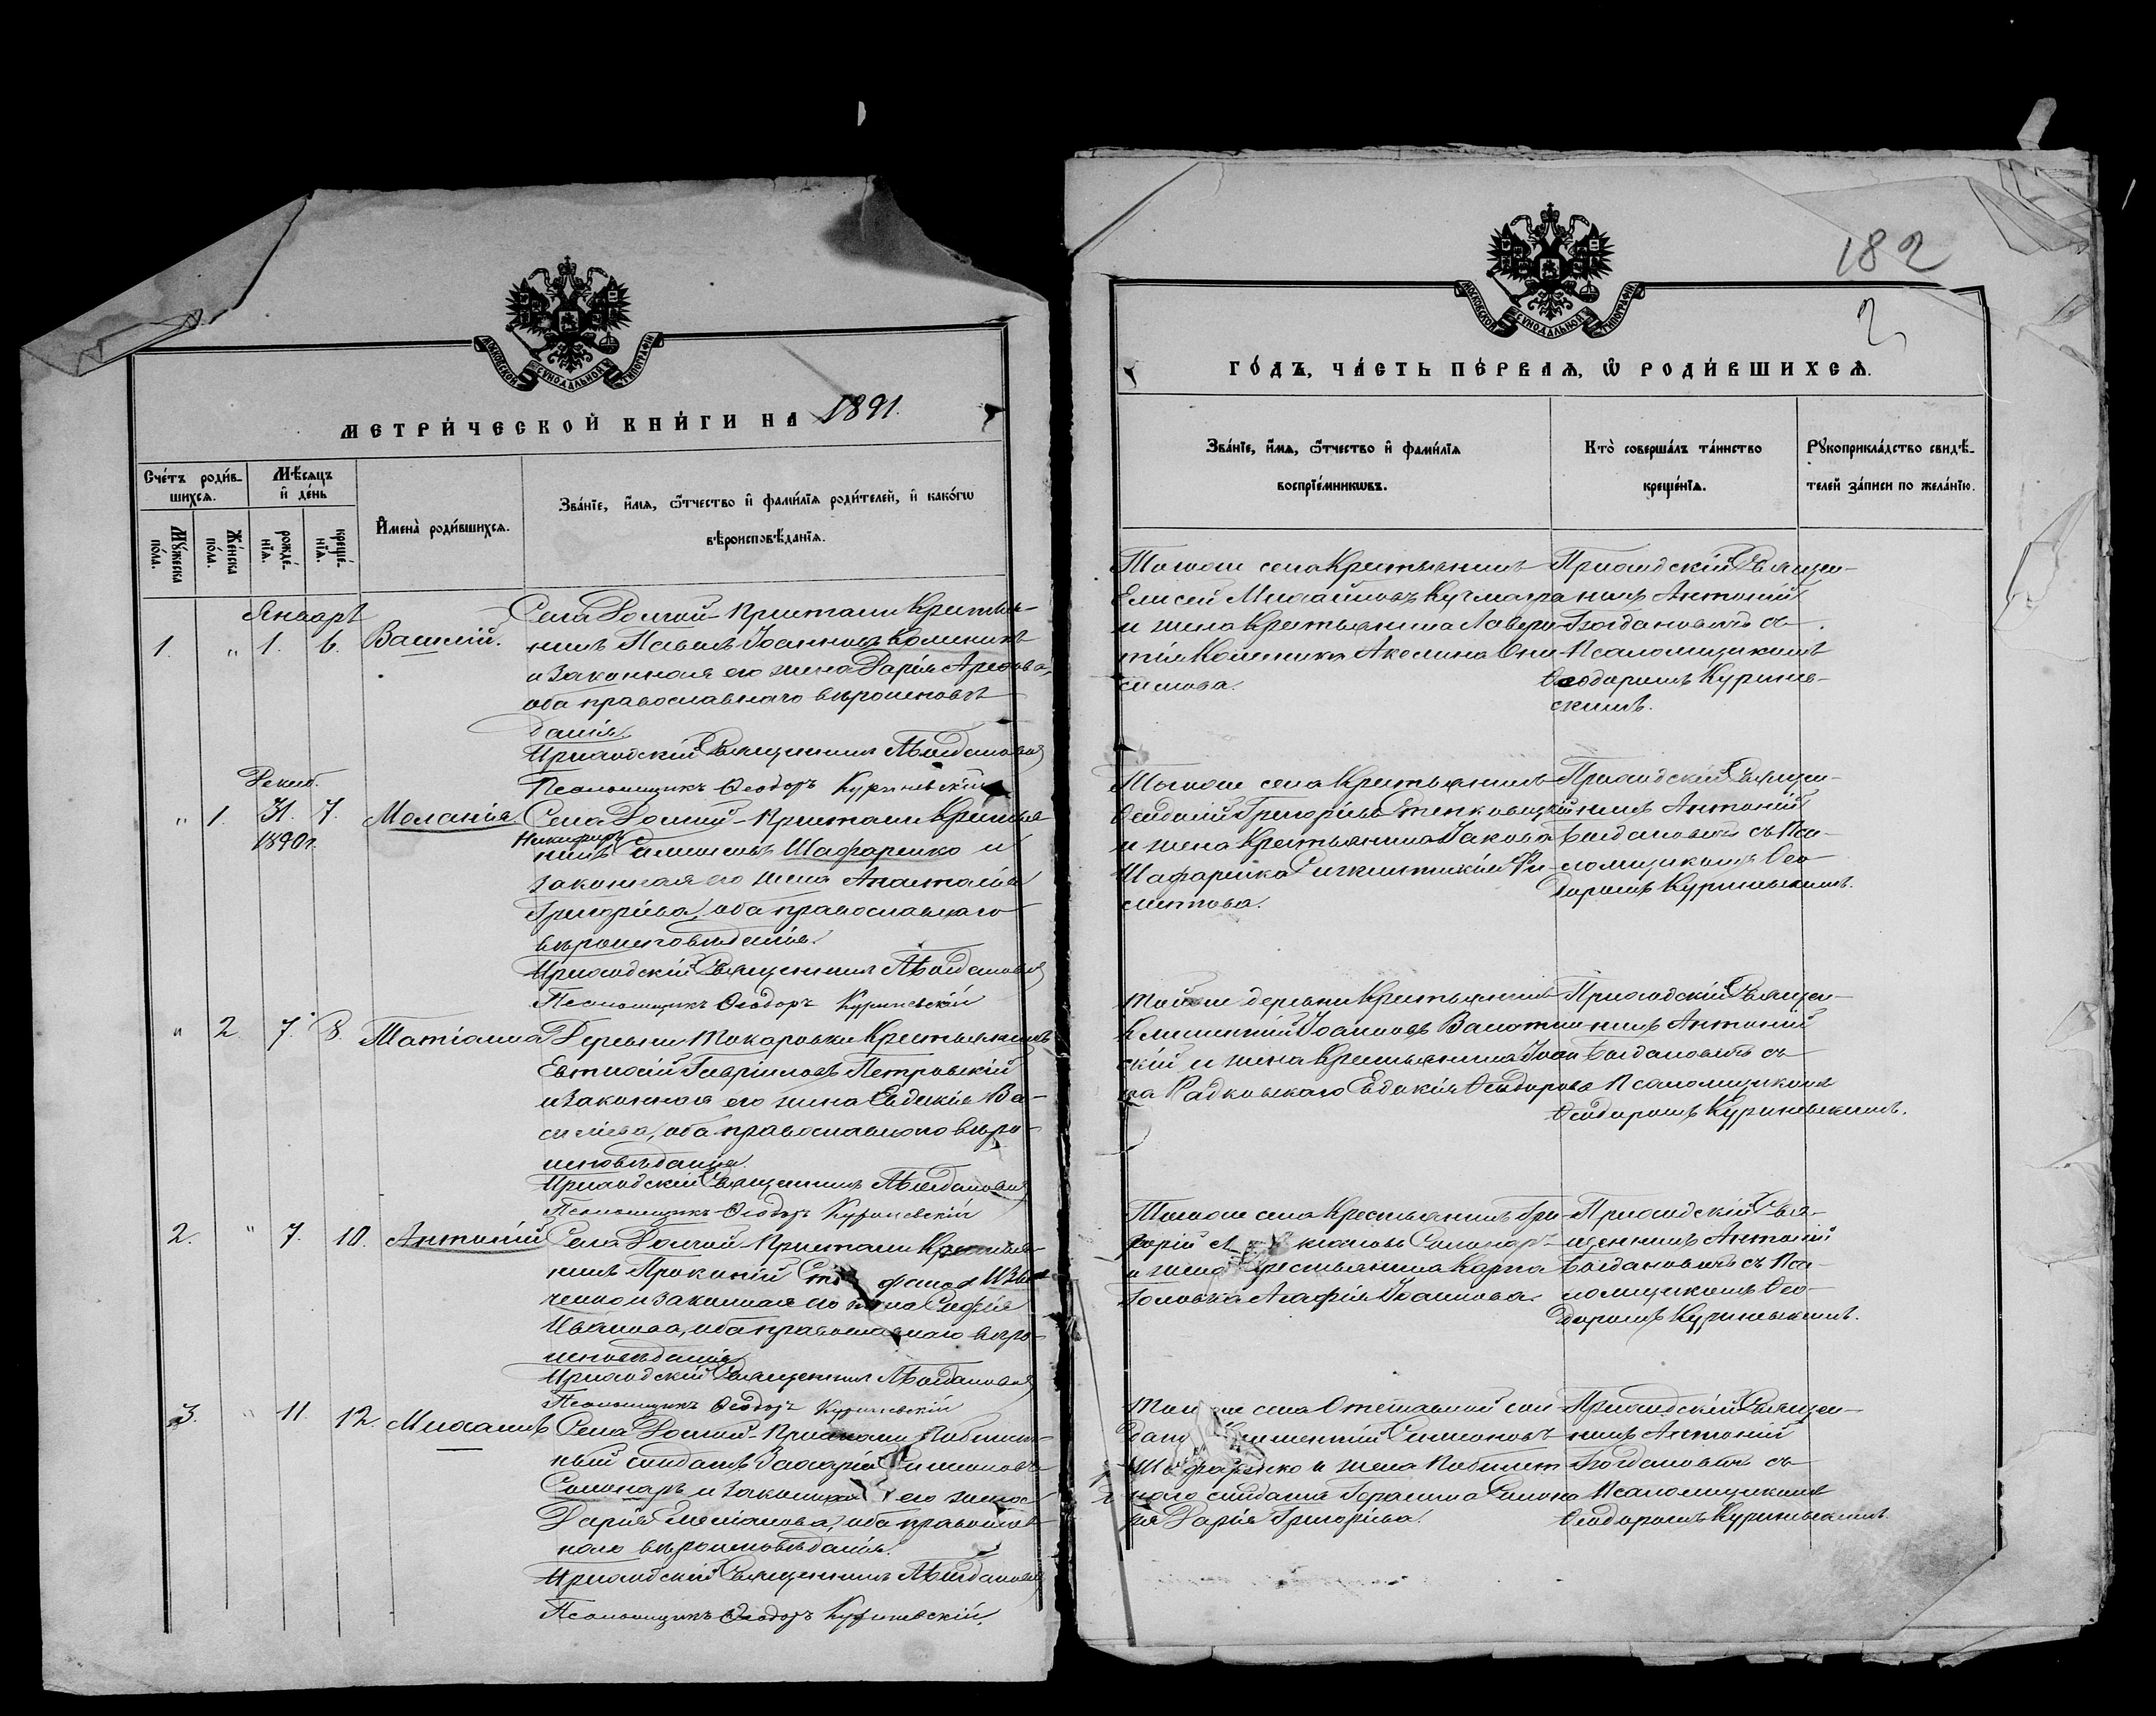 МОСКОВСКОЙ СУНОДАЛЬНОЙ ТИПОГРАФІИ
МЕТРИ́ЧЕСКОЙ КНИ́ГИ НА 1891.
Сче́тъ роди́вшихсѧ.
Мѣ́сѧцъ и҆ де́нь
И҆мена̀ роди́вшихсѧ.
Зва́нїе, и҆́мѧ, ѻ҆́тчество и҆ фами́лїѧ роди́телей, и҆ како́гѡ
вѣроисповѣ́данїѧ.
Мꙋ́жеска по́ла.
Же́нска по́ла.
рожде́нїѧ.
креще́нїѧ.
Январь
1. " 1. 6. Василій.
Села Долгой-Пристани Крестья-
нинъ Павелъ Іоанновъ Колесникъ
и законная его жена Дарія
оба православнаго вѣроисповѣ
данія.
Приходскій Священникъ А. Богдановичъ
Псаломщикъ Ѳеодоръ Куриневскій
Декаб.
" 1. 31. 7. Меланія
1890 г.
Села Долгой-Пристани Крестья-
Никифоръ
нинъ Симеоновъ Шафаренко и
законная его жена Анастасія
Григоріева, оба православнаго
вѣроисповѣданія.
Приходскій Священникъ А. Богдановичъ
Псаломщикъ Ѳеодоръ Куриневскій
" 2. 7. 8. Татіанна
Деревни Токаровки Крестьянинъ
Евтихій Гавріиловъ Петровскій
и законная его жена Евдокія Ва-
силіева, оба православнаго вѣро-
исповѣданія.
Приходскій Священникъ А. Богдановичъ
Псаломщикъ Ѳеодоръ Куриневскій
2. " 7. 10. Антоній
Села Долгой-Пристани Крестья-
нинъ Прокопій
и законная его жена Софія
Иванова, оба православнаго вѣро-
исповѣданія.
Приходскій Священникъ А. Богдановичъ
Псаломщикъ Ѳеодоръ Куриневскій
3. " 11. 12. Михаилъ
Села Долгой-Пристани, Побилет-
ный солдатъ Захарій Симеоновъ
и законная его жена
Дарія, оба православ-
наго вѣроисповѣданія.
Приходскій Священникъ А. Богдановичъ
Псаломщикъ Ѳеодоръ Куриневскій.
182
2
МОСКОВСКОЙ СУНОДАЛЬНОЙ ТИПОГРАФІИ
ГО́ДЪ, ЧА́СТЬ ПЕ́РВАѦ, Ѡ҆ РОДИ́ВШИХСѦ.
Зва́нїе, и҆́мѧ, ѻ҆́тчество и҆ фами́лїѧ
воспрїе́мникѡвъ.
Кто̀ соверша́лъ та́инство
креще́нїѧ.
Рꙋкоприкла́дство свидѣ́-
телей за́писи по жела́нїю.
Тогоже села Крестьянинъ
Елисей Михайловъ Кучмагра
и жена Крестьянина Лавре-
тія Колесника Акелина Они-
симова.
Приходскій Священ-
никъ Антоній
Богдановичъ съ
Псаломщикомъ
Ѳеодоромъ Куринев-
скимъ.
Тогоже села Крестьянинъ
Григорьевъ
и жена Крестьянина Іакова
Шафаренка
Приходскій Священ-
никъ Антоній
Богдановичъ съ Пса-
ломщикомъ Ѳео-
доромъ Куриневскимъ.
Тойже деревни Крестьянинъ
Климентій Іоанновъ
скій и жена Крестьянина Іоан-
на Радковскаго Евдокія Ѳеодорова
Приходскій Священ-
никъ Антоній
Богдановичъ съ
Псаломщикомъ
Ѳеодоромъ Куриневскимъ.
Тогоже села Крестьянинъ Гри-
горій
и жена Крестьянина Карпа
Головка Агафія Іоаннова.
Приходскій Свя-
щенникъ Антоній
Богдановичъ съ Пса-
ломщикомъ Ѳео-
доромъ Куриневскимъ.
Тогоже села Отставной сол-
датъ Климентій Симеоновъ
Шафаренко и жена Побилет-
наго солдата Герасима
Дарія Григорьева.
Приходскій Священ-
никъ Антоній
Богдановичъ съ
Псаломщикомъ
Ѳеодоромъ Куриневскимъ.